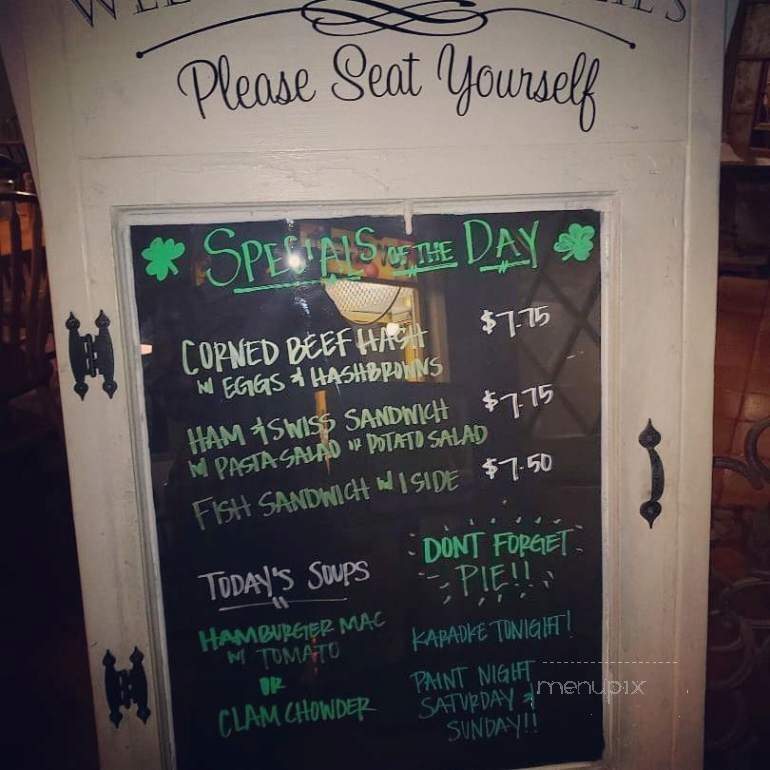 Please Seat Yourself
SPECIALS OF THE DAY
CORNED BEEF HASH $7.75
W/ EGGS & HASHBROWNS
HAM & SWISS SANDWICH $7.75
W/ PASTA SALAD OR POTATO SALAD
FISH SANDWICH W/ 1 SIDE $7.50
DONT FORGET
PIE!!
TODAY'S SOUPS
HAMBURGER MAC
W/ TOMATO
OR
CLAM CHOWDER
KARAOKE TONIGHT!
PAINT NIGHT
SATURDAY &
SUNDAY!!
menupix